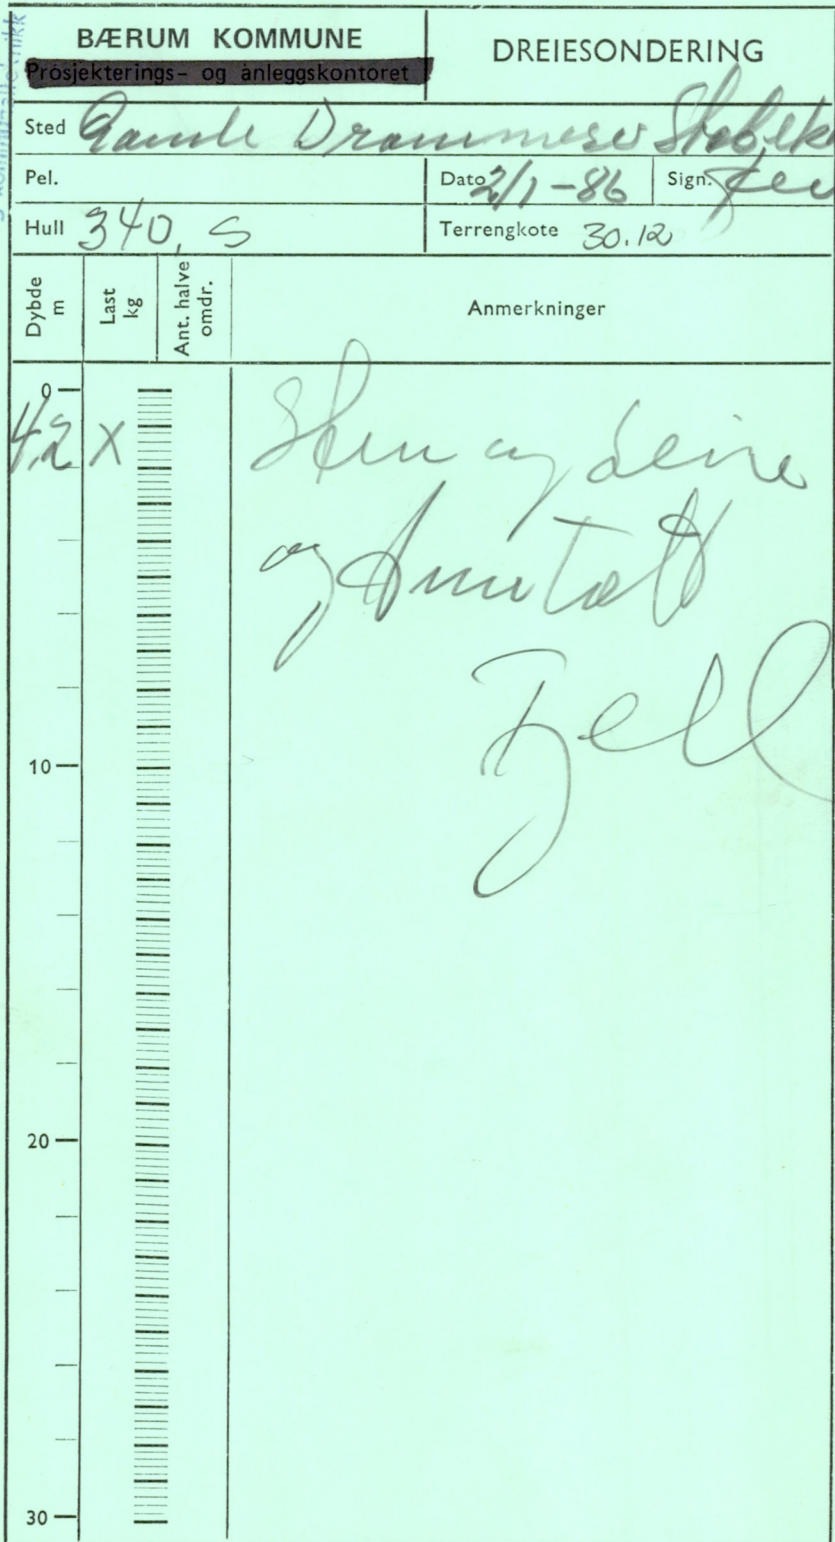 BÆRUM KOMMUNE
Prosjekterings- og anleggskontoret
DREIESONDERING
Sted Gamle Drammensv Stabekk
Pel.
Dato 2/1-86
Sign.
Hull 340, S
Terrengkote 30.12
Dybde m
Last kg
Ant. halve omdr.
Anmerkninger
0
4,2 X
Sten og Leire
og
Fjell
10
20
30